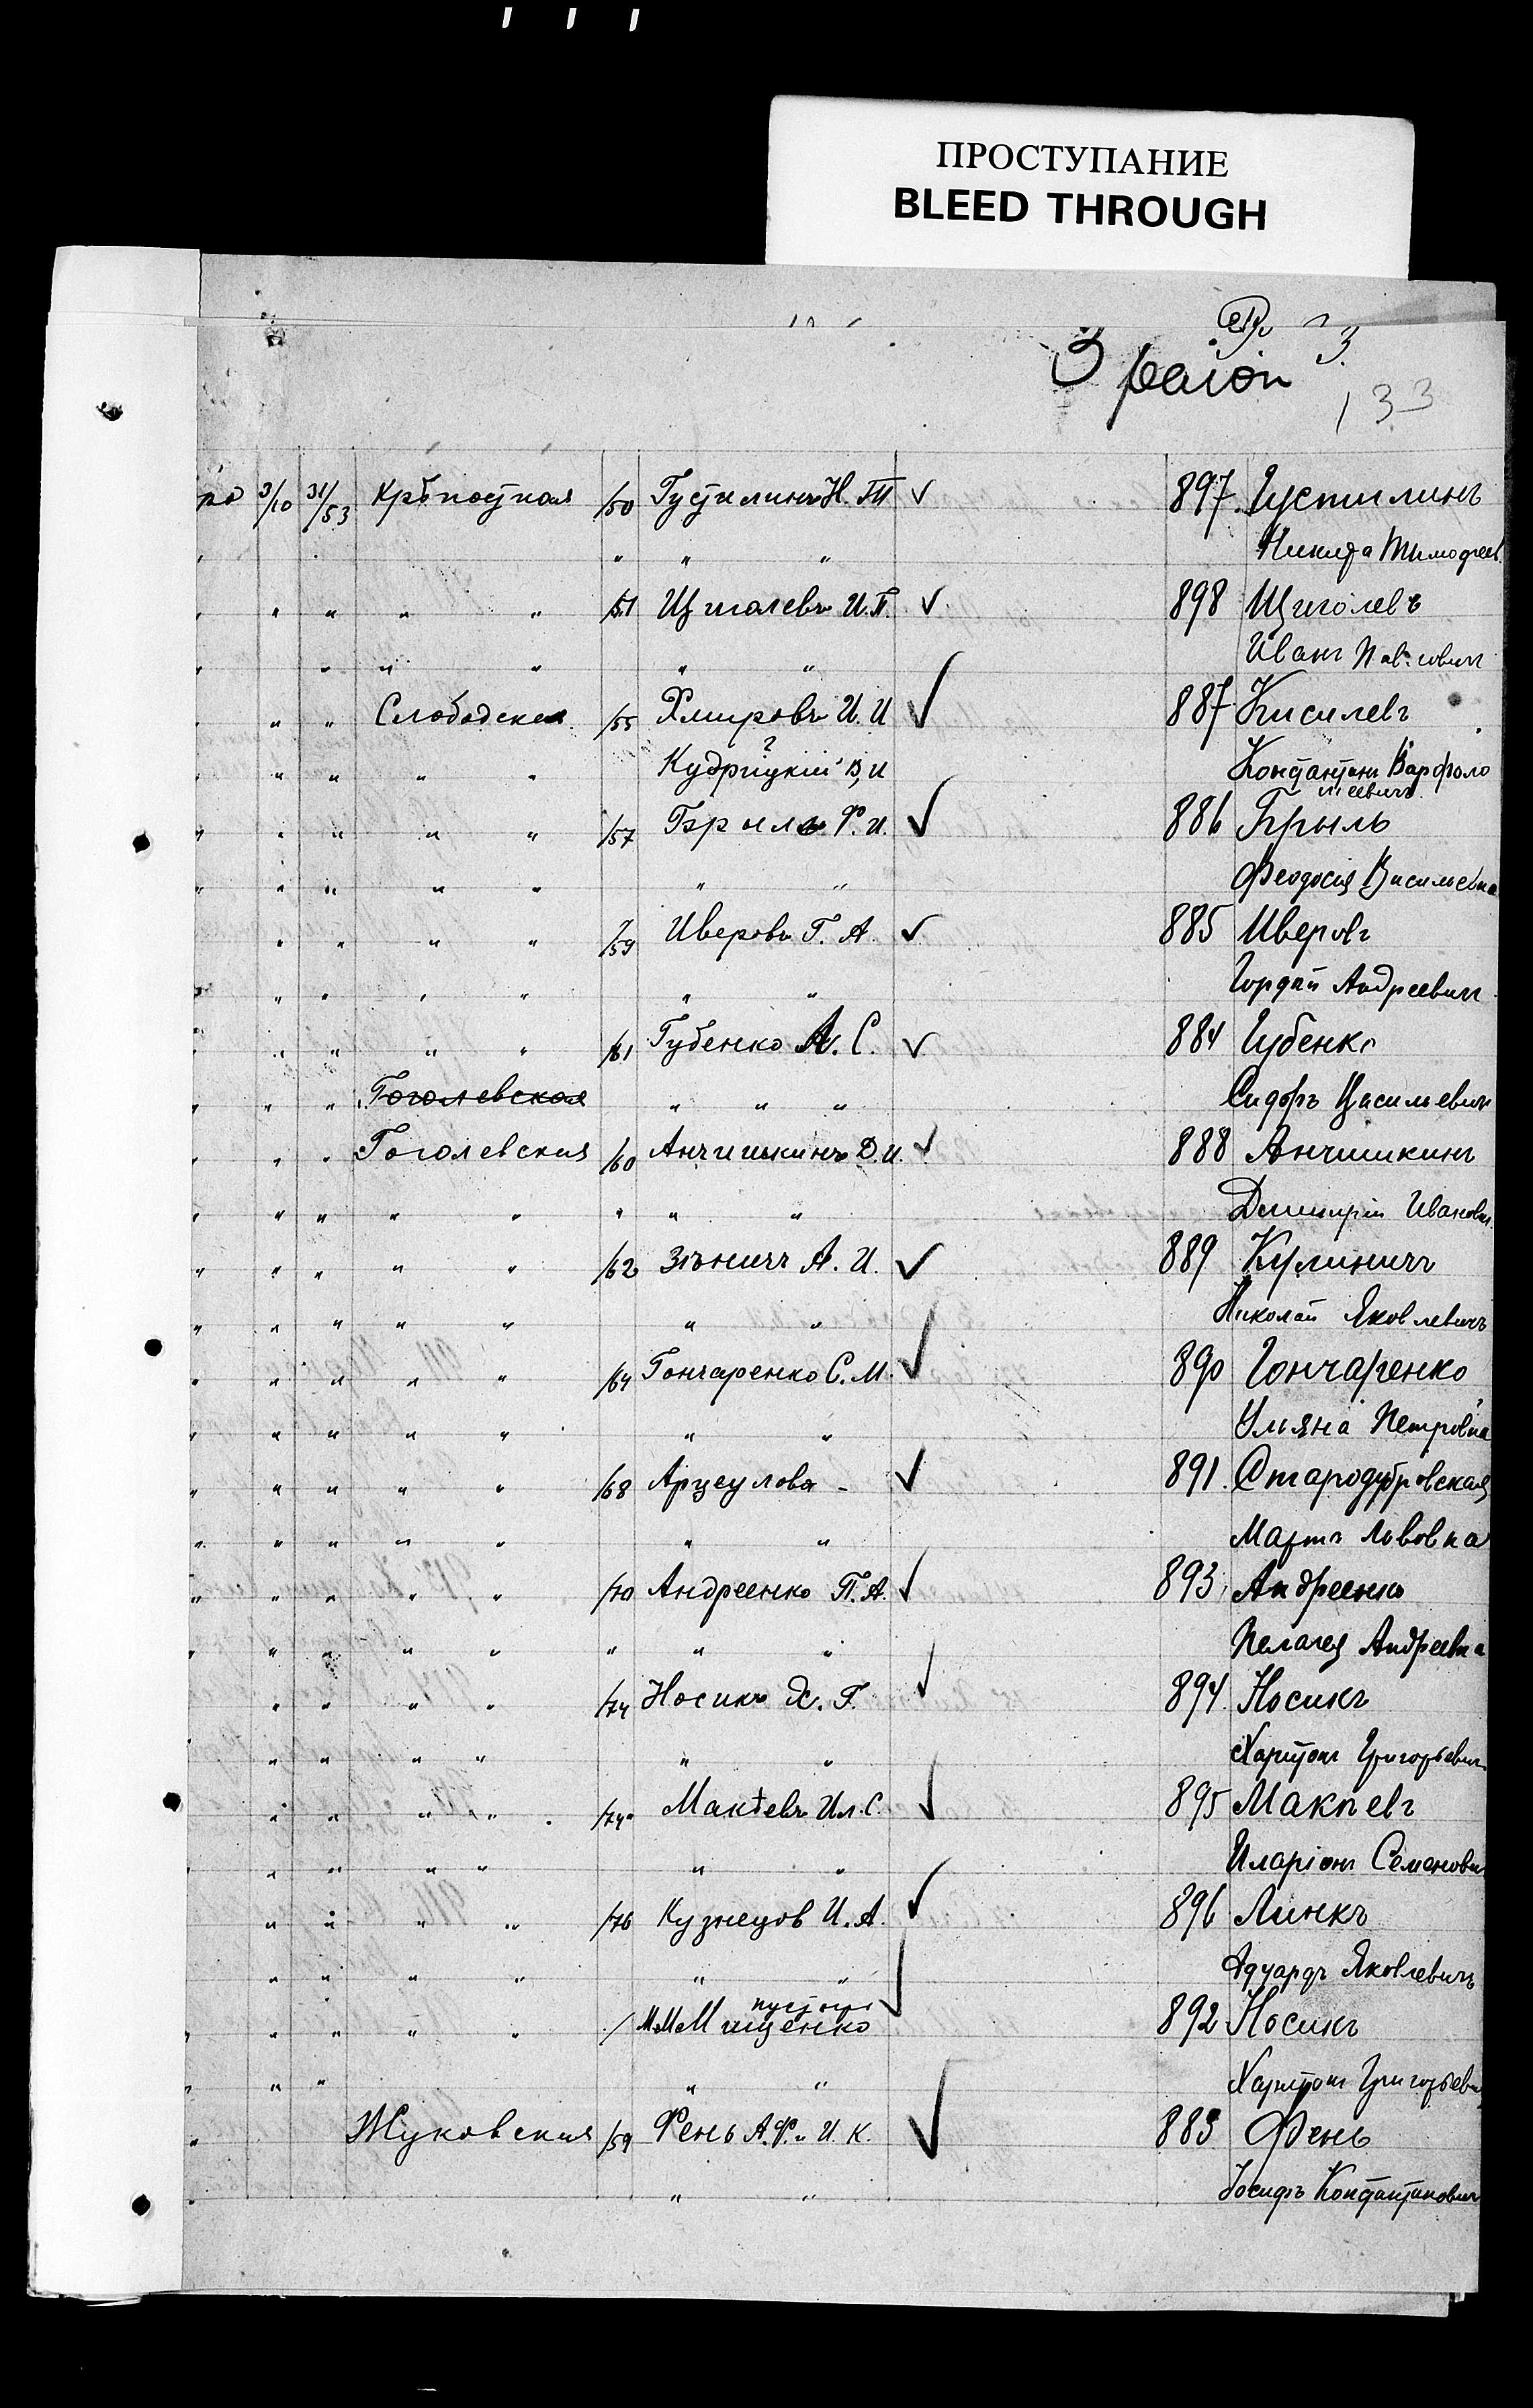 ПРОСТУПАНИЕ
BLEED THROUGH
3 раіон 3.
133
ро 3/10 31/53 Крѣпостная /50 Густилинъ Н. Т. 897. Густилинъ
" " " Никита Тимофеев.
" " " " " /51 Щиголевъ И. П. 898 Щиголевъ
" " " " " " Иванъ
" " " Слободская /55 Хмыровъ И. И 887 Кисилевъ
" " " " " Кудрицкій В, И Константинъ Варфоло
меевичъ
" " " " " /57 Брыль Ф. И. 886 Брыль
" " " " " " " Феодосія Васильевна
" " " " /59 Иверовъ Г. А. 885 Иверовъ
" " " " " " Гордѣй Андреевичъ
" " " " " /61 Губенко А. С. 884 Губенко
" " " Гоголевская " " " Сидоръ Васильевич
" " " Гоголевская /60 Анчишкинъ Д. И. 888 Анчишкинъ
" " " " " " " " Дмитрій Иванови.
" " " " " /62 Зѣничъ А. И. 889 Кулиничъ
" " " " " " " Николай Яковлевичъ
" " " " " /64 Гончаренко С. М. 890 Гончаренко
" " " " " " " Ульяна Петровна
" " " " " /68 Арцеулова - 891. Стародубровская
" " " " " " " Марта Львовна
" " " " " /70 Андреенко П. А. 893 Андреенко
" " " " " " " " Пелагея Андреевна
" " " " " /74 Носикъ Х. Г. 894. Носикъ
" " " " " " Харитонъ Григорьевич
" " " " /74а Макѣевъ Ил. С. 895 Макѣевъ
" " " " " " " Иларіонъ Семенови
" " " " /76 Кузнецов И. А. 896 Линкъ
" " " " " " Эдуардъ Яковлевичъ
пустырь
" " " " " / Мищенко 892 Носикъ
" " " " " Харитонъ Григорьеви
" Жуковская /59 Фень А. Ф. и И. К. 883 Фень
" " " Іосифъ Константинович